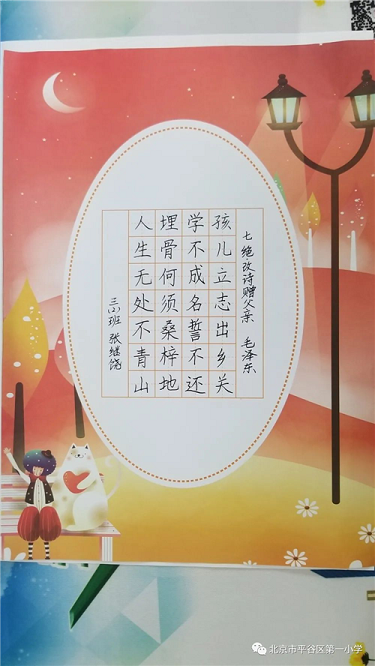 七绝改诗赠父亲 毛泽东
孩儿立志出乡关
学不成名誓不还
埋骨何须桑梓地
人生无处不青山
三(2)班 张继饶
北京市平谷区第一小学